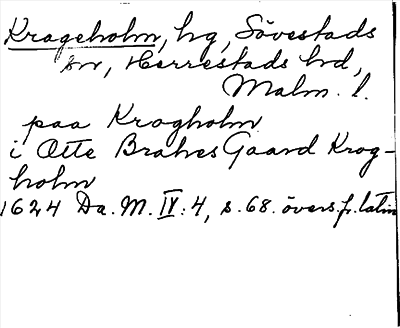 Krageholm, hg, Sövestads
sn, Herrestads hd,
Malm. l.
paa Krogholm
i Otte Brahes Gaard Krog-
holm
1624 Da. M. IV: 4, s. 68. övers. fr. latin